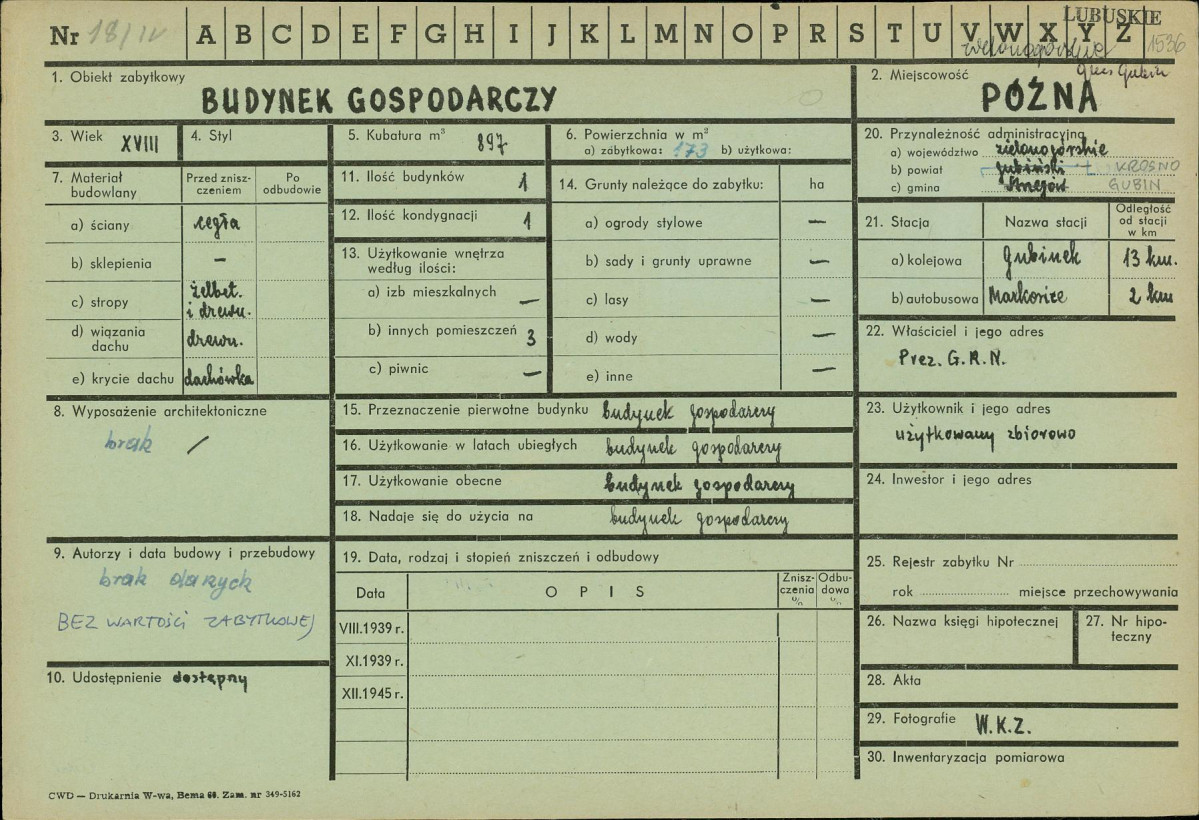 LUBUSKIE
Nr 18/IV A B C D E F G H I J K L M N O P R S T U V W X Y Z 1536
gm. Gubin
1. Obiekt zabytkowy
BUDYNEK GOSPODARCZY
2. Miejscowość
PÓŹNA
3. Wiek XVIII
4. Styl
5. Kubatura m³ 897
6. Powierzchnia w m²
a) zabytkowa: 173 b) użytkowa:
20. Przynależność administracyjna
a) województwo zielonogórskie
b) powiat gubiński KROSNO
c) gmina Strzegów GUBIN
7. Materiał budowlany
Przed zniszczeniem
Po odbudowie
a) ściany cegła
b) sklepienia –
c) stropy żelbet. i drewn.
d) wiązania dachu drewn.
e) krycie dachu dachówka
11. Ilość budynków 1
12. Ilość kondygnacji 1
13. Użytkowanie wnętrza według ilości:
a) izb mieszkalnych –
b) innych pomieszczeń 3
c) piwnic –
14. Grunty należące do zabytku: ha
a) ogrody stylowe –
b) sady i grunty uprawne –
c) lasy –
d) wody –
e) inne –
21. Stacja
Nazwa stacji
Odległość od stacji w km
a) kolejowa Gubinek 13 km.
b) autobusowa Markosice 2 km
22. Właściciel i jego adres
Prez. G.R.N.
8. Wyposażenie architektoniczne
brak /
15. Przeznaczenie pierwotne budynku budynek gospodarczy
16. Użytkowanie w latach ubiegłych budynek gospodarczy
17. Użytkowanie obecne budynek gospodarczy
18. Nadaje się do użycia na budynek gospodarczy
23. Użytkownik i jego adres
użytkowany zbiorowo
24. Inwestor i jego adres
9. Autorzy i data budowy i przebudowy
brak danych
BEZ WARTOŚCI ZABYTKOWEJ
10. Udostępnienie dostępny
19. Data, rodzaj i stopień zniszczeń i odbudowy
Data
OPIS
Zniszczenia %
Odbudowa %
VIII.1939 r.
XI.1939 r.
XII.1945 r.
25. Rejestr zabytku Nr
rok miejsce przechowywania
26. Nazwa księgi hipotecznej
27. Nr hipoteczny
28. Akta
29. Fotografie W.K.Z.
30. Inwentaryzacja pomiarowa
CWD — Drukarnia W-wa, Bema 60. Zam. nr 349-5162